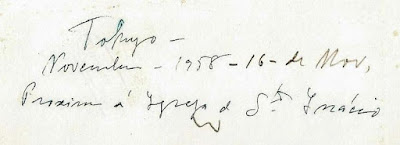 Tokyo -
Novembro - 1958 - 16 - de Nov,
Proximo á Igreja d Sto Inácio